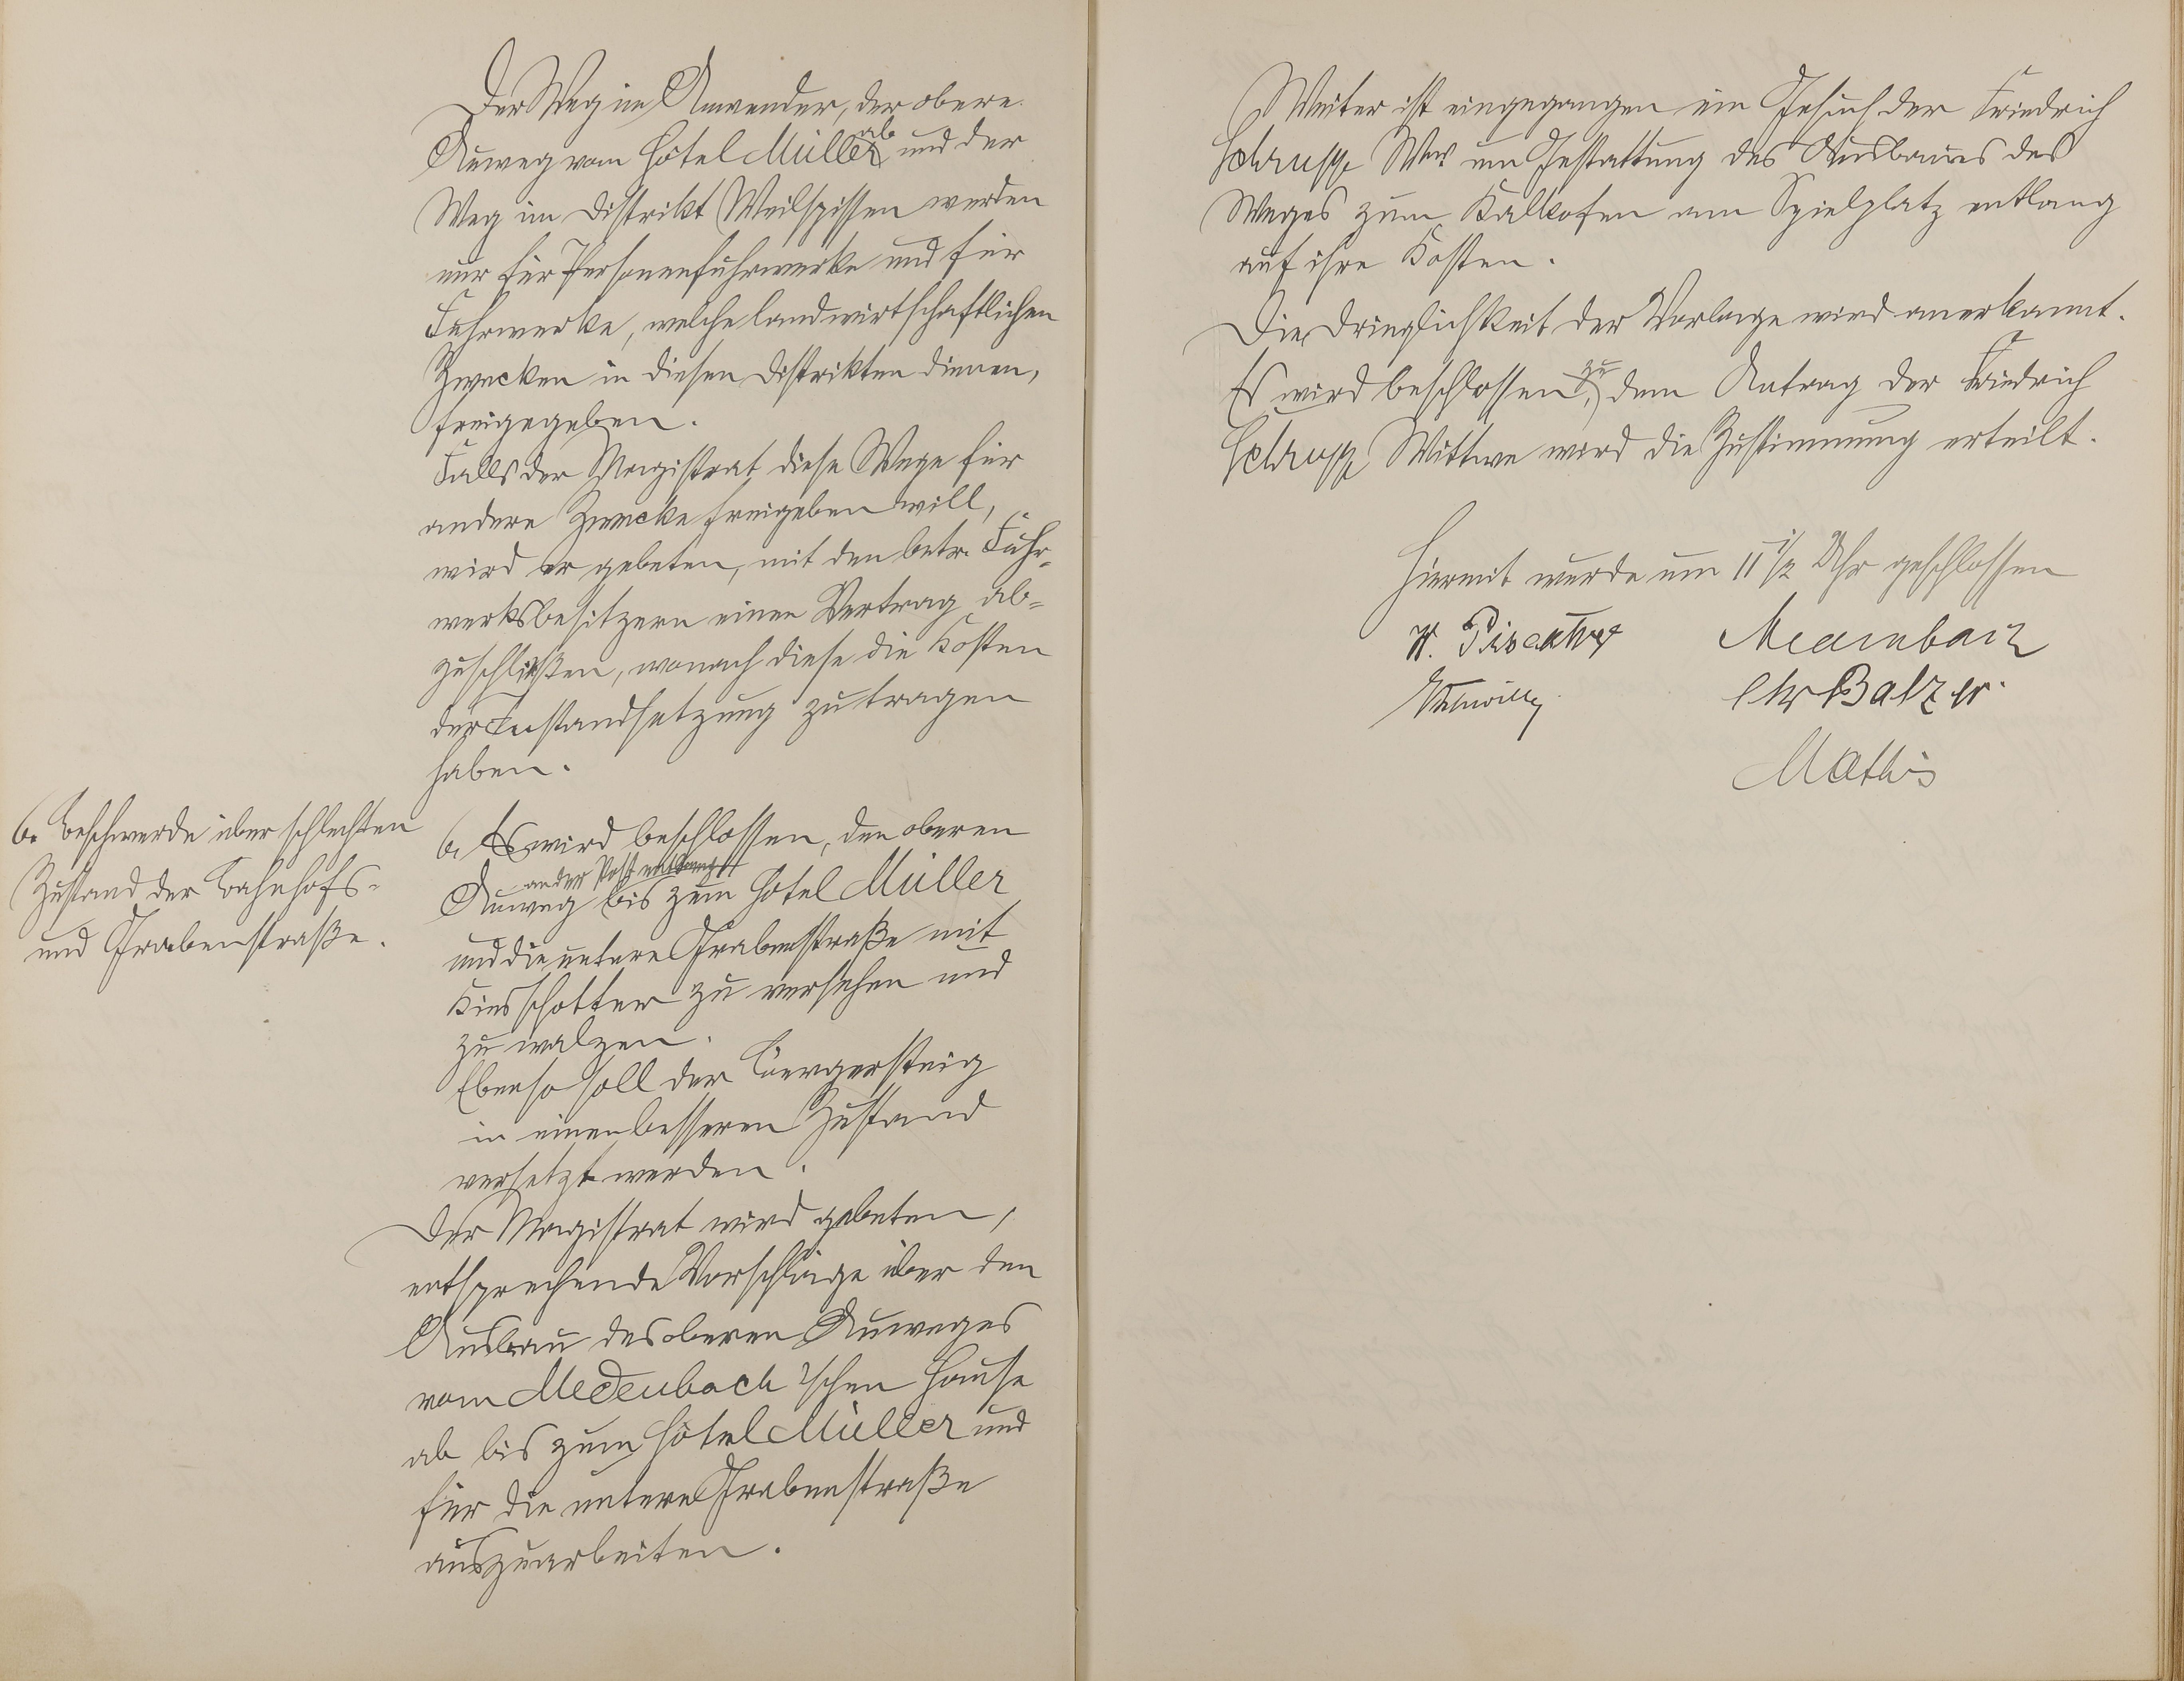 Der Weg im Anwender, der obere
Auweg vom Hotel Müller ab und der
Weg im Distrikt Weilspissen werden
nur für Personenfuhrwerke und für
Fuhrwerke, welche landwirtschaftlichen
Zwecken in diesen Distrikten dienen,
freigegeben.
Falls der Magistrat diese Wege für
andere Zwecke freigeben will,
wird er gebeten, mit den betr. Fuhr-
werksbesitzern einen Vertrag ab-
zuschließen, wonach diese die Kosten
der Instandsetzung zu tragen
haben.
6. Beschwerde über schlechten
Zustand der Bahnhofs-
und Grabenstraße.
6. Es wird beschlossen, den oberen
an der Post entlang
Auweg bis zum Hotel Müller
und die untere Grabenstraße mit
Kiesschotter zu versehen und
zu walzen.
Ebenso soll der Bürgersteig
in einen besseren Zustand
versetzt werden.
Der Magistrat wird gebeten,
entsprechende Vorschläge über den
Ausbau des oberen Auweges
vom Medenbach'schen Hause
ab bis zum Hôtel Müller und
für die untere Grabenstraße
auszuarbeiten.
Weiter ist eingegangen ein Gesuch der Friedrich
Schrupp Ww. um Gestattung des Ausbaues des
Weges zum Kalkofen am Spielplatz entlang
auf ihre Kosten.
Die Dringlichkeit der Vorlage wird anerkannt.
Es wird beschlossen, zu dem Antrag der Friedrich
Schrupp Wittwe wird die Zustimmung erteilt.
Hiermit wurde um 11 1/2 Uhr geschlossen
W.
Chr Balzer.
Mathis